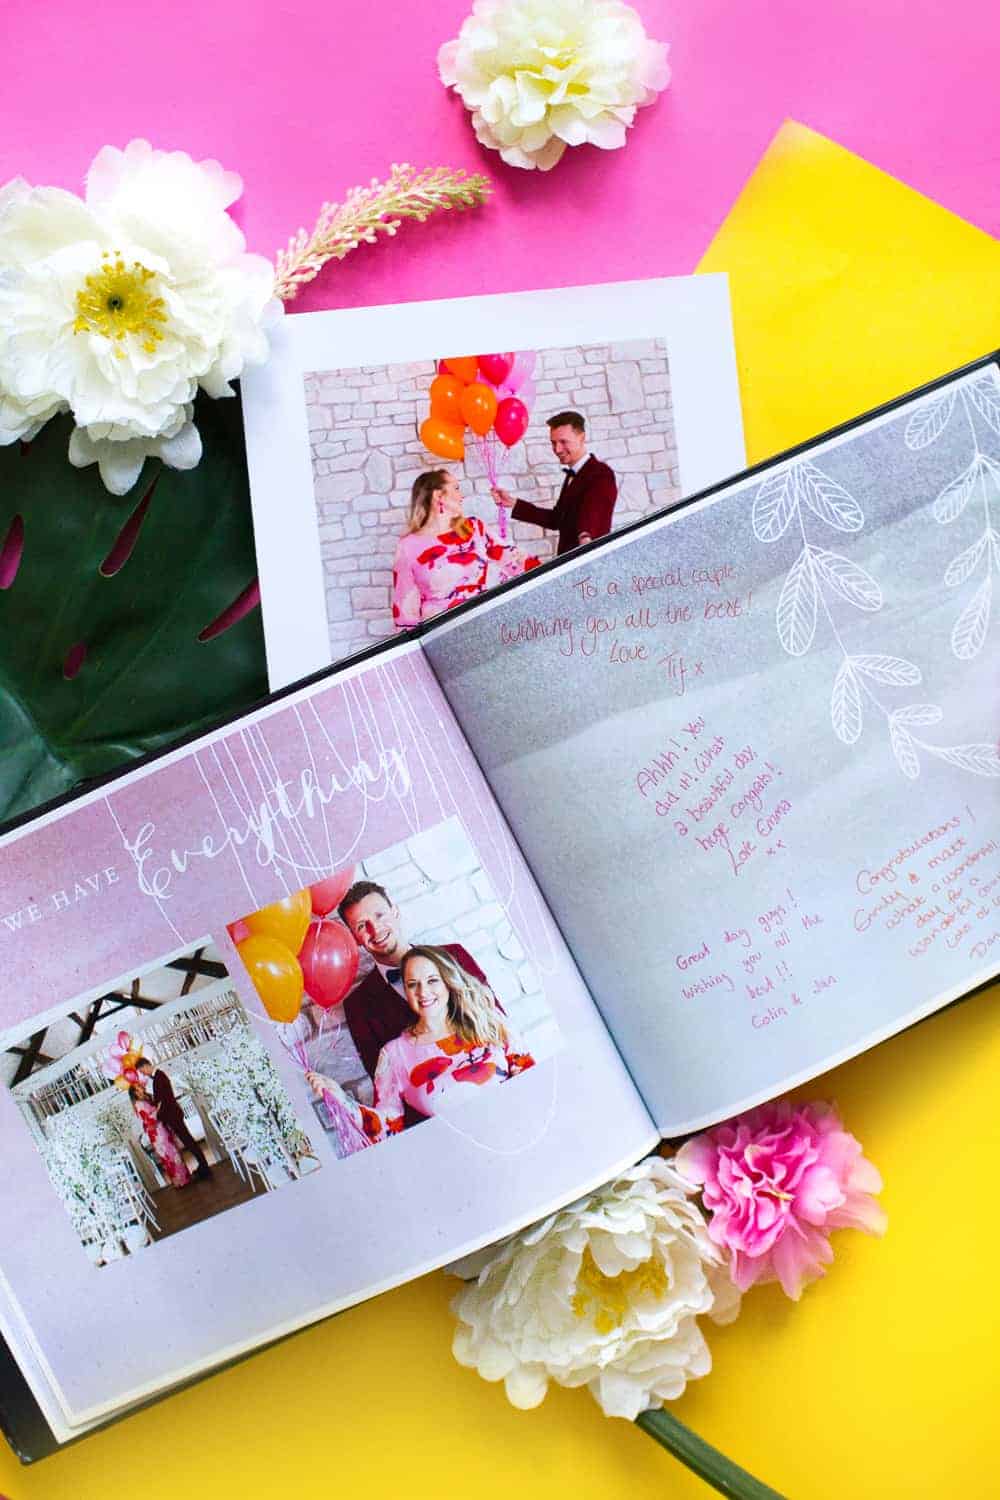 WE HAVE Everything
To a special couple,
Wishing you all the best!
Love
Tif x
Ahhh! You
did it! What
a beautiful day,
huge congrats!
Love Emma
xx
Great day guys!
wishing you all the
best!!
Colin & Jan
Congratulations!
Emily & Matt
what a wonderful
day for a
wonderful
Lots of